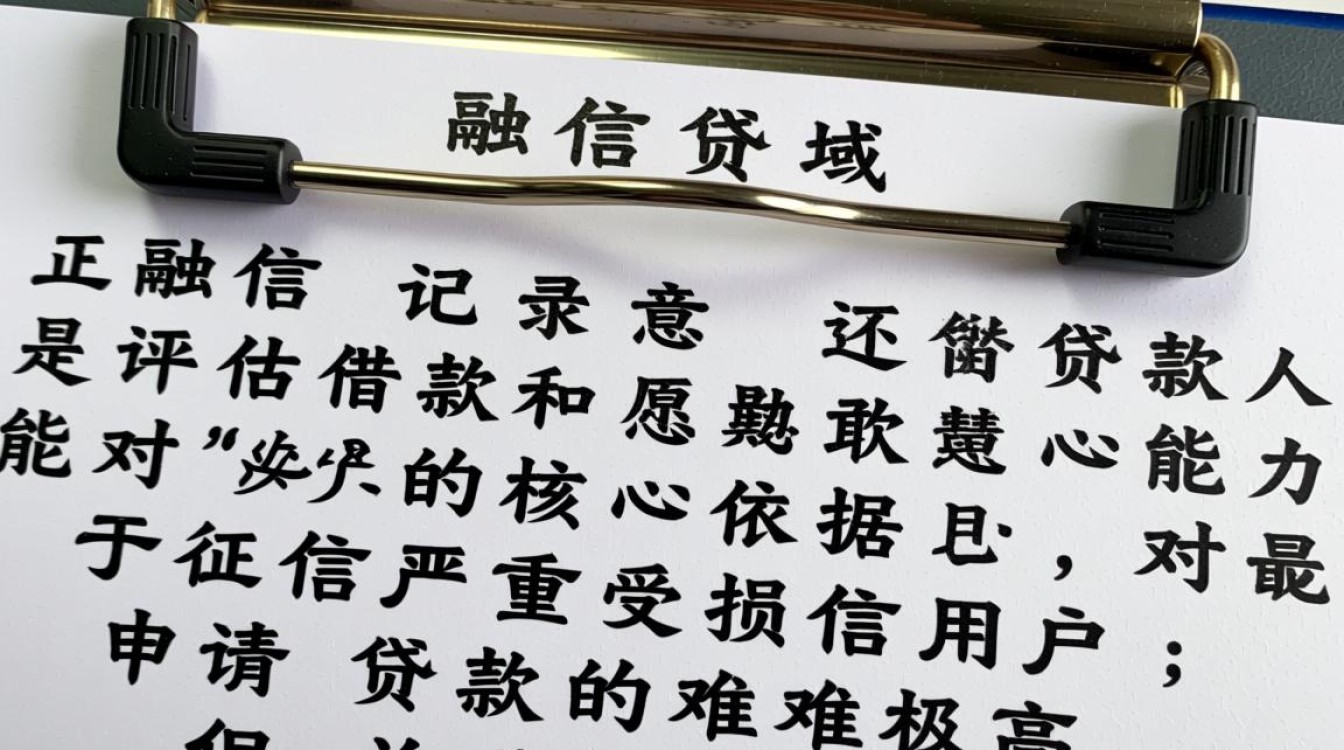 融信贷域
正融信 记录意 还 贷款人
是评估借款和愿 还敢慧心能力
能对“ 的核心依据 ，对最
于征信严重受损信用户；
申请 贷款的难难极高